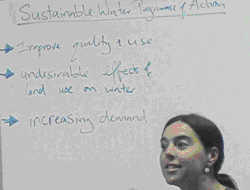 Sustainable Water Programme of Action
Improve quality & use
undesirable effects of
land use on water
increasing demand